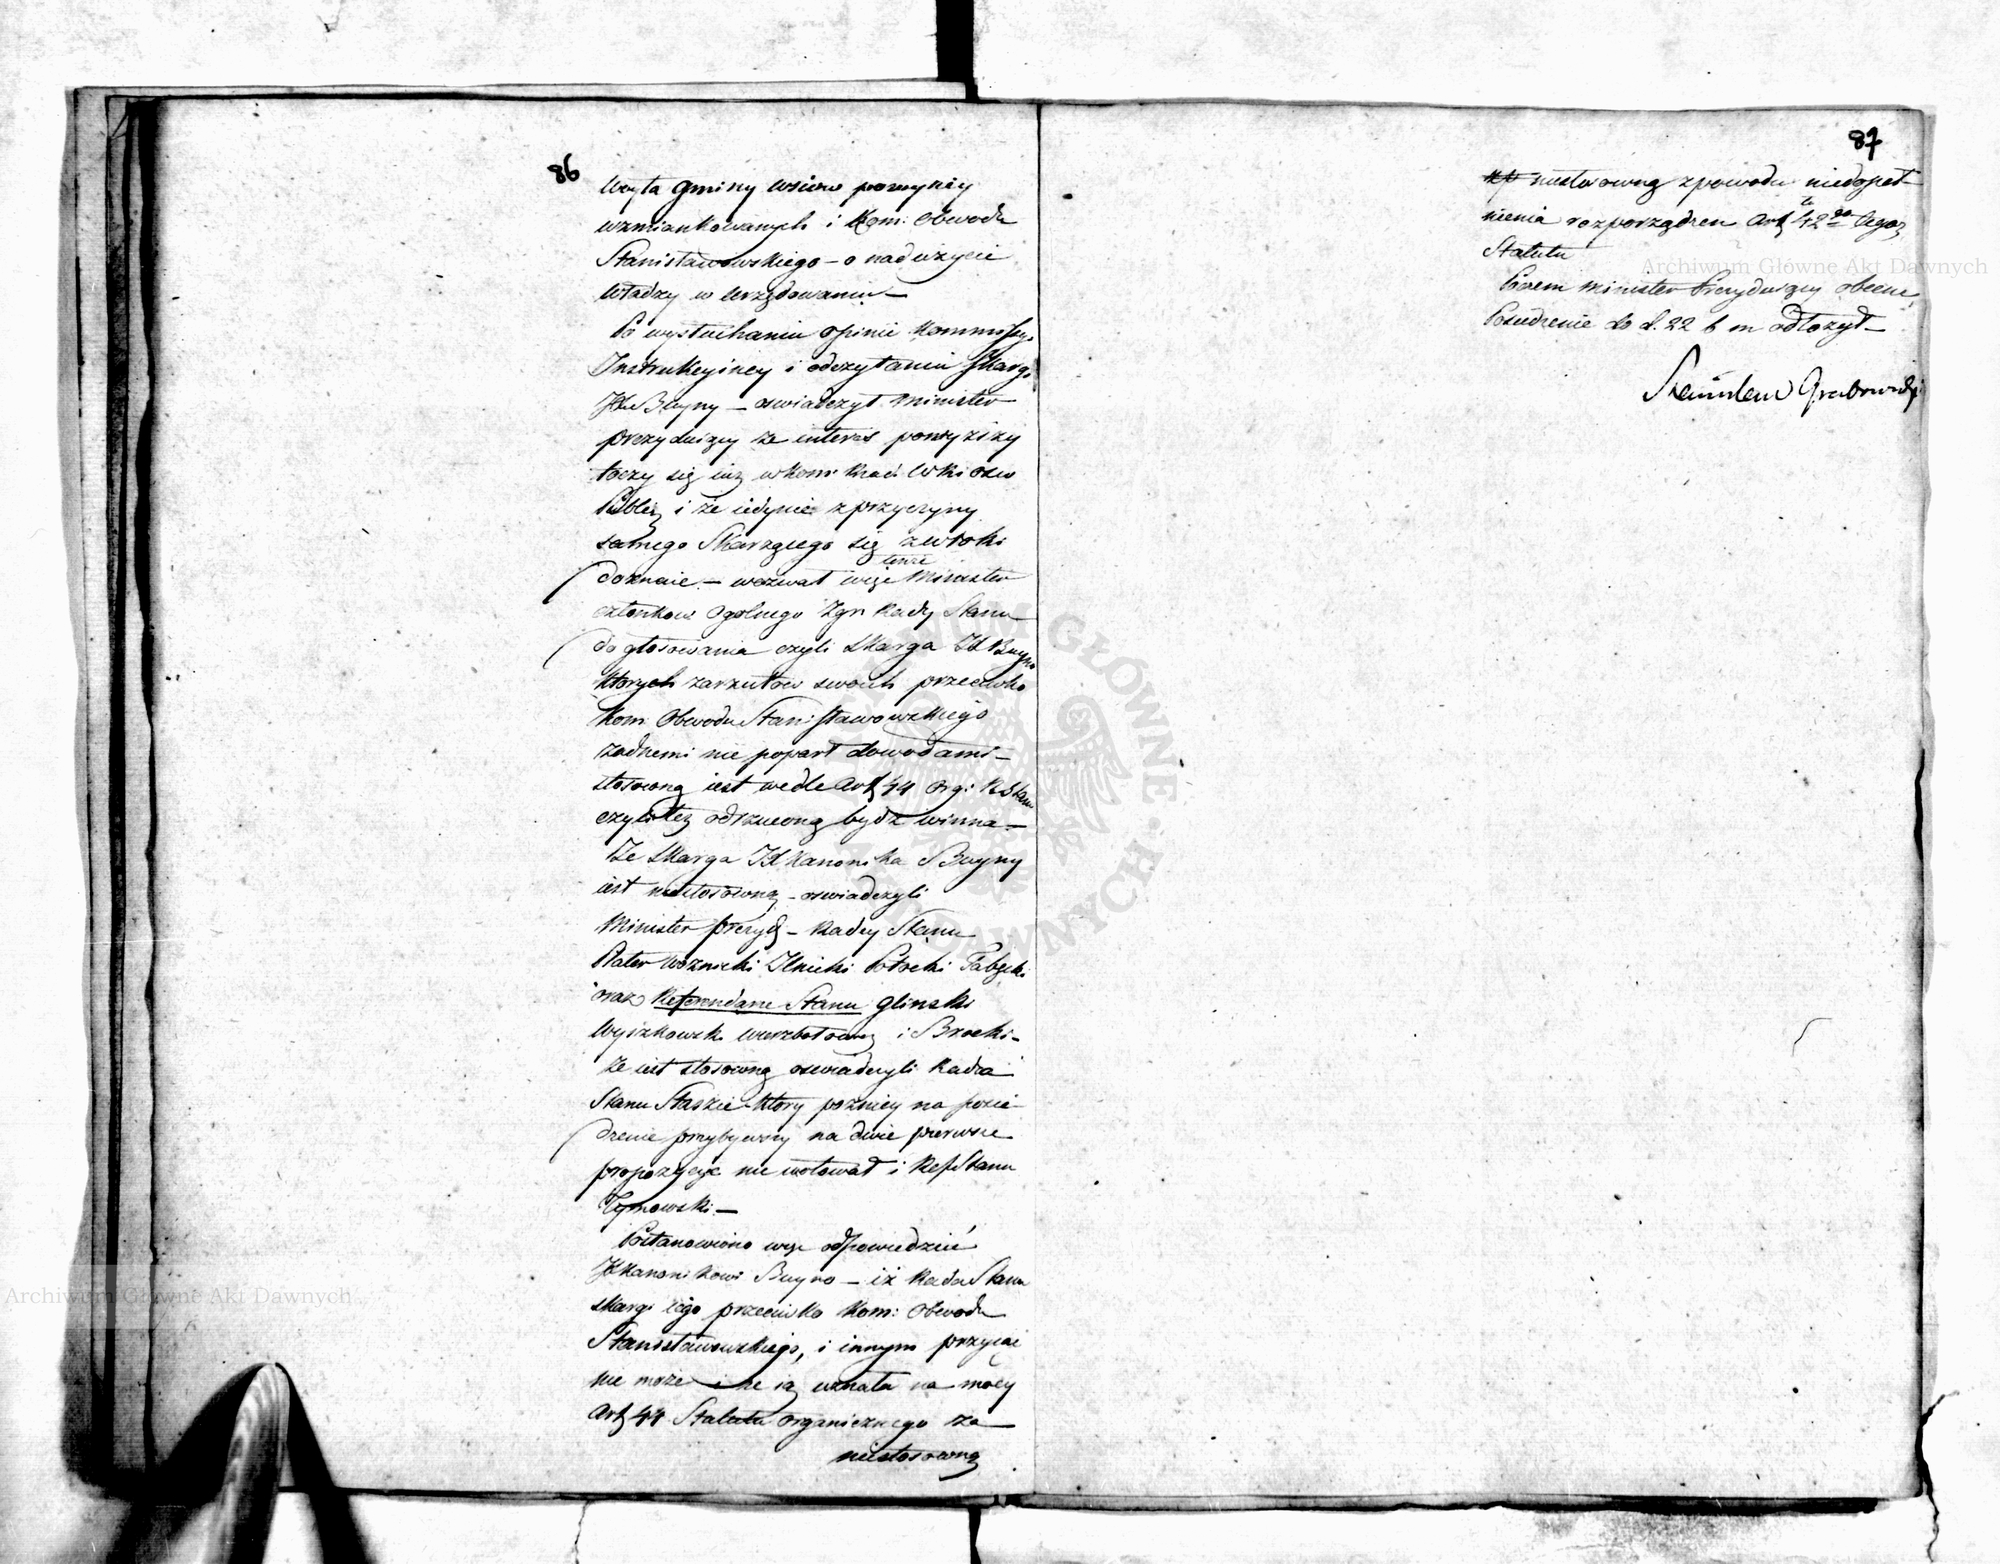 86
Woyta Gminy wsiow powyżey
wzmiankowanych i Kom: Obwodu
Stanisławowskiego – o nadużycie
władzy w urzędowaniu –
Po wysłuchaniu opinii Kommissyi
Instrukcyiney i odczytaniu skargi
JXa Buyny – oswiadczył Minister
prezyduiący że interes powyższy
toczy się iuż w Kom: Rząd: W Ri Osw
Publicz i że iedynie z przyczyny
samego Skarżącego się zwłoki
doznaie – wezwał więc tenże Minister
członkow Ogolnego Zgr: Rady Stanu
do głosowania czyli skarga JX Buyno
ktorych zarzutow swoich przeciwko
Kom: Obwodu Stanisławowskiego
żadnemi nie poparł dowodami –
stosowną iest wedle Art 44 Org: R Stanu
czyli też odrzuconą bydź winna –
Że skarga JX Kanonika Buyny
iest niestosowną – oswiadczyli
Minister prezyd – Radcy Stanu
Plater Woznicki Potocki
oraz Referendarze Stanu Glinski
Wyszkowski Wierzbołowicz i Brocki –
że iest stosowną oswiadczyli Radca
Stanu Staszic ktory pozniey na posie-
dzenie przybywszy na dwie pierwsze
propozycye nie wotował i Ref Stanu
Tymowski –
Postanowiono więc odpowiedzieć
JX Kanonikowi Buyno – iż Rada Stanu
skargi iego przeciwko Kom: Obwodu
Stanisławowskiego, i innym przyiąć
nie może i że ią uznała na mocy
Art 44 Statutu organicznego za
niestosowną
87
niestosowną z powodu niedopeł-
nienia rozporządzen Art 42go tegoż
Statutu
Poczem Minister Prezyduiący obecne
Posiedzenie do d. 22 b m odłożył –
Stanisław Grabowski
Archiwum Główne Akt Dawnych
Archiwum Główne Akt Dawnych
ARCHIWUM GŁÓWNE AKT DAWNYCH